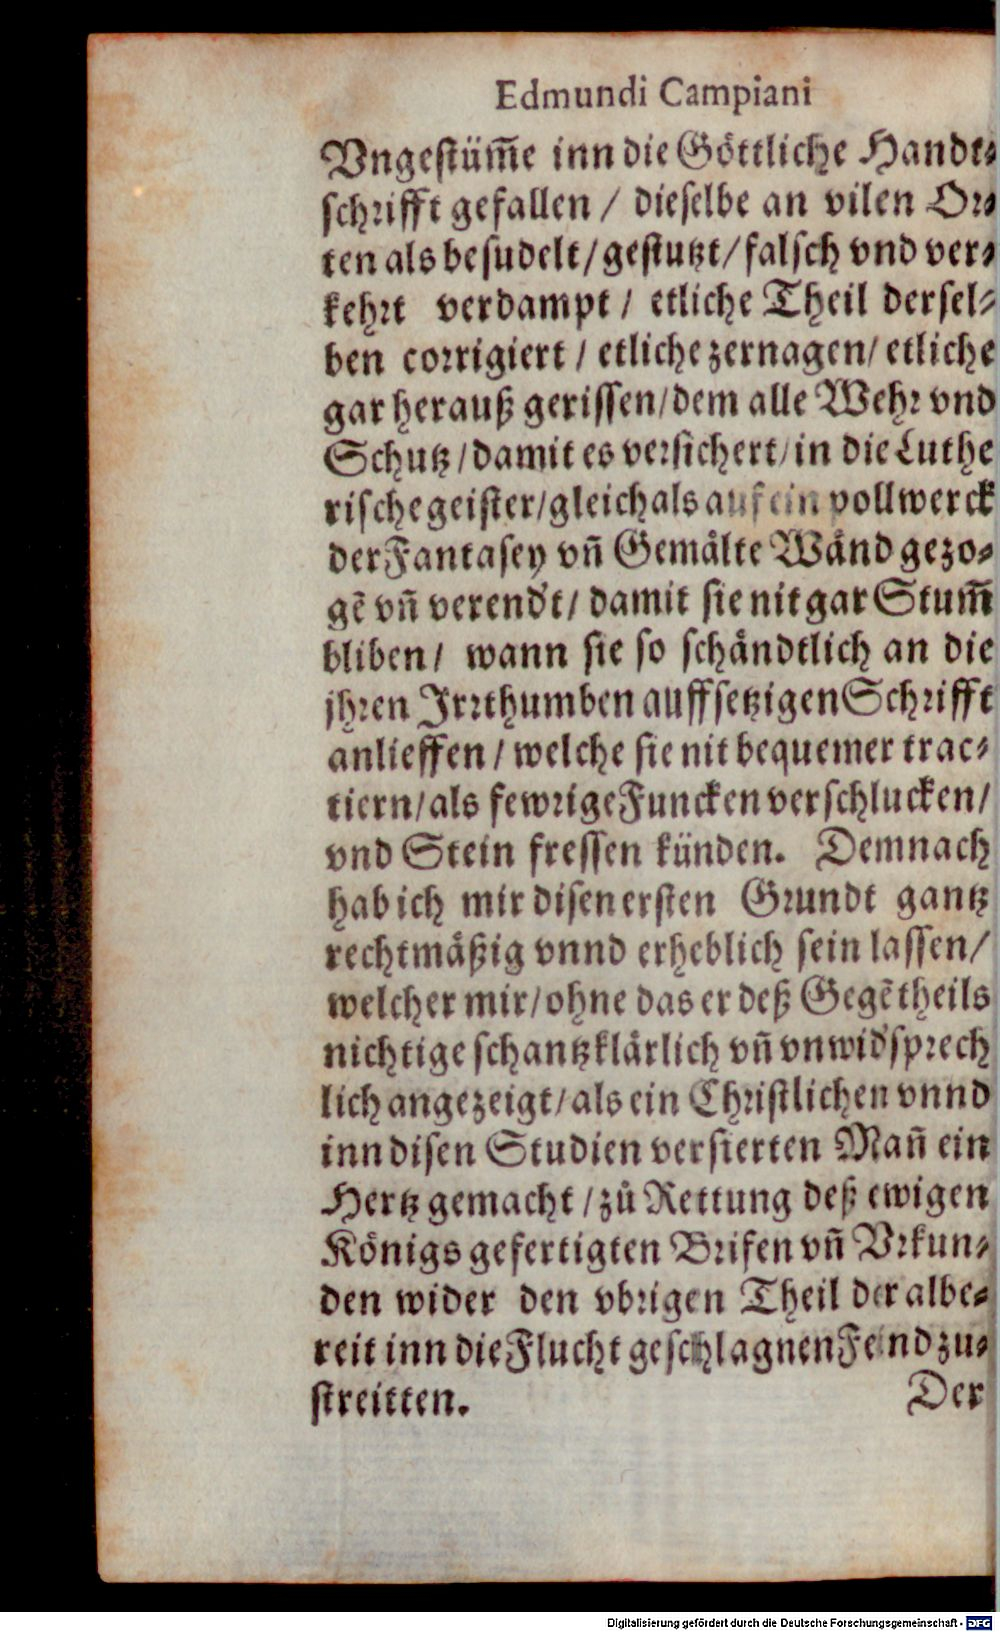 Edmundi Campiani
Vngestüm̃e inn die Göttliche Handt-
schrifft gefallen / dieselbe an vilen Or-
ten als besudelt / gestutzt / falsch vnd ver-
kehrt verdampt / etliche Theil dersel-
ben corrigiert / etliche zernagen / etliche
gar herauß gerissen / dem alle Wehr vnd
Schutz / damit es versichert / in die Luthe
rische geister / gleich als auf ein pollwerck
der Fantasey vñ Gemälte Wänd gezo-
gẽ vñ verend't / damit sie nit gar Stum̃
bliben / wann sie so schändtlich an die
jhren Irrthumben auffsetzigen Schrifft
anlieffen / welche sie nit bequemer trac-
tiern / als fewrige Funcken verschlucken /
vnd Stein fressen künden. Demnach
hab ich mir disen ersten Grundt gantz
rechtmäßig vnnd erheblich sein lassen /
welcher mir / ohne das er deß Gegẽtheils
nichtige schantz klärlich vñ vnwid'sprech
lich angezeigt / als ein Christlichen vnnd
inn disen Studien versierten Mañ ein
Hertz gemacht / zů Rettung deß ewigen
Königs gefertigten Brifen vñ Vrkun-
den wider den vbrigen Theil der albe-
reit inn die Flucht geschlagnen Feind zu-
streitten.
Der
Digitalisierung gefördert durch die Deutsche Forschungsgemeinschaft - DFG